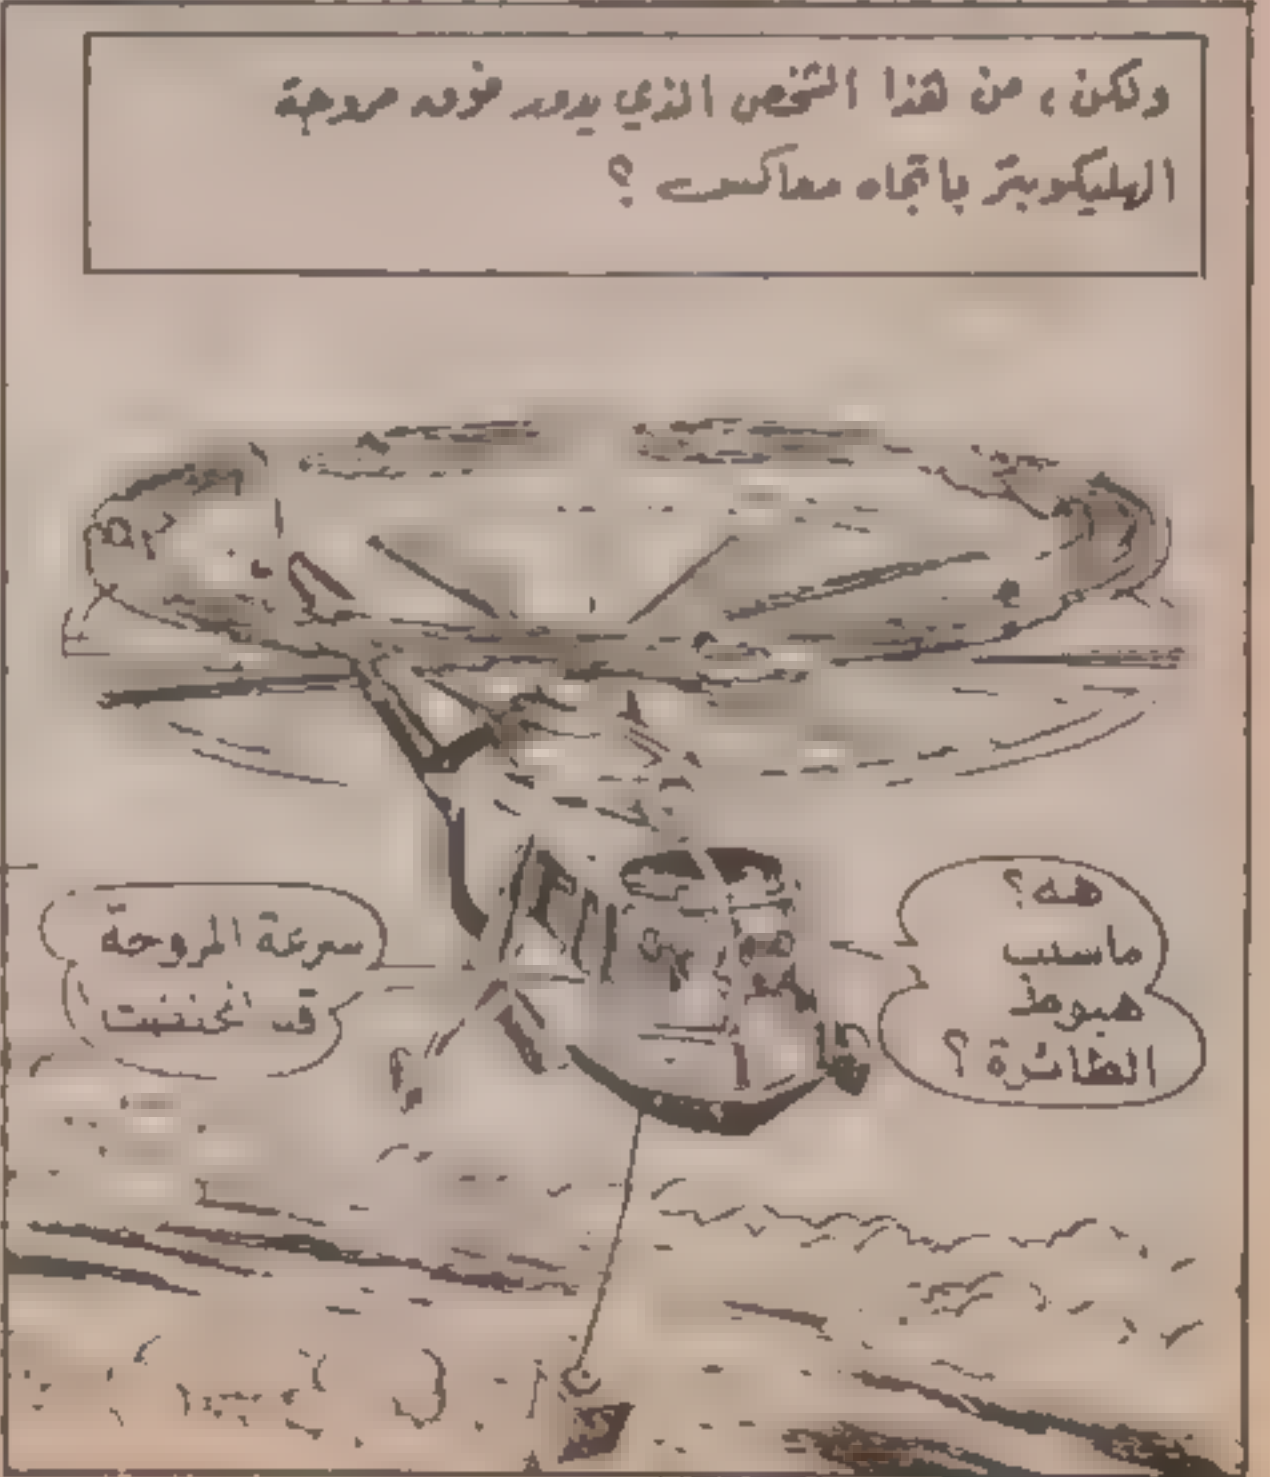 ولكن، من هذا الشخص الذي يدور فوق مروحة
الهليكوبتر باتجاه معاكس ؟
هه ؟
ماسبب
هبوط
الطائرة ؟
سرعة المروحة
قد انخفضت